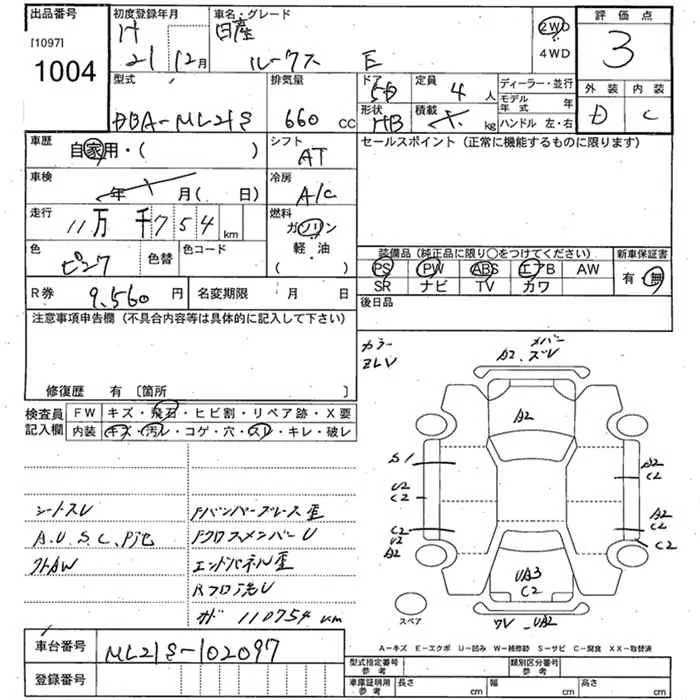 出品番号
[1097]
1004
初度登録年月
H
21 12月
車名・グレード
日産
ルークス E
2WD
4WD
評価点
3
外装 内装
D C
型式
DBA-ML21S
排気量
660 cc
ドア
5D
形状
HB
定員
4人
積載
kg
ディーラー・並行
モデル年式 年
ハンドル 左・右
車歴
自家用・( )
シフト
AT
セールスポイント (正常に機能するものに限ります)
車検
年 月( 日)
冷房
A/C
走行
11万 千754 km
燃料
ガソリン
軽・油
( )
色
ピンク
色替
色コード
装備品 (純正品に限り○をつけてください)
PS PW ABS エアB AW
SR ナビ TV カワ
新車保証書
有・無
R券
9,560円
名変期限 月 日
後日品
注意事項申告欄 (不具合内容等は具体的に記入して下さい)
修復歴 有 〔箇所 〕
検査員記入欄
FW キズ・飛石・ヒビ割・リペア跡・X要
内装 キズ・汚レ・コゲ・穴・スレ・キレ・破レ
シートスU
A.U.S.C.P他
外AW
Fバンパーブレース歪
FクロスメンバーU
エンドパネル歪
Rフロ洗U
メーバー
A2
A2
S1
U2
C2
C2
U2
A2
A2
C2
A2
C2
C2
UA3
C2
UA2
スペア
110754 km
A-キズ E-エクボ U-凹み W-補修跡 S-サビ C-腐食 XX-取替済
車台番号
ML21S-102097
登録番号
型式指定番号
参考
類別区分番号
参考
車庫証明用
参考
長さ cm
幅 cm
高さ cm